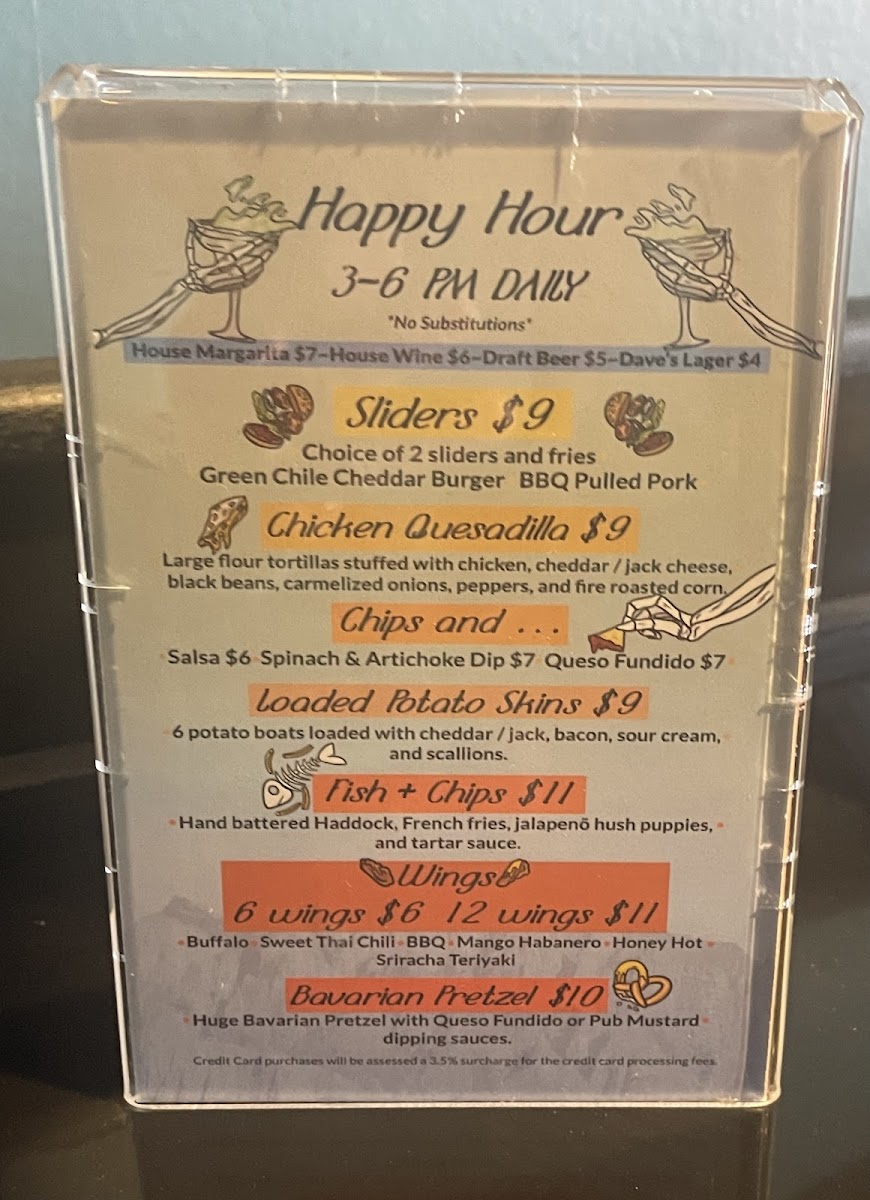 Happy Hour
3-6 PM DAILY
*No Substitutions*
House Margarita $7-House Wine $6-Draft Beer $5-Dave's Lager $4
Sliders $9
Choice of 2 sliders and fries
Green Chile Cheddar Burger BBQ Pulled Pork
Chicken Quesadilla $9
Large flour tortillas stuffed with chicken, cheddar / jack cheese,
black beans, carmelized onions, peppers, and fire roasted corn.
Chips and ...
Salsa $6 Spinach & Artichoke Dip $7 Queso Fundido $7
Loaded Potato Skins $9
6 potato boats loaded with cheddar / jack, bacon, sour cream,
and scallions.
Fish + Chips $11
Hand battered Haddock, French fries, jalapenõ hush puppies,
and tartar sauce.
Wings
6 wings $6 12 wings $11
Buffalo • Sweet Thai Chili • BBQ • Mango Habanero • Honey Hot •
Sriracha Teriyaki
Bavarian Pretzel $10
Huge Bavarian Pretzel with Queso Fundido or Pub Mustard
dipping sauces.
Credit Card purchases will be assessed a 3.5% surcharge for the credit card processing fees.